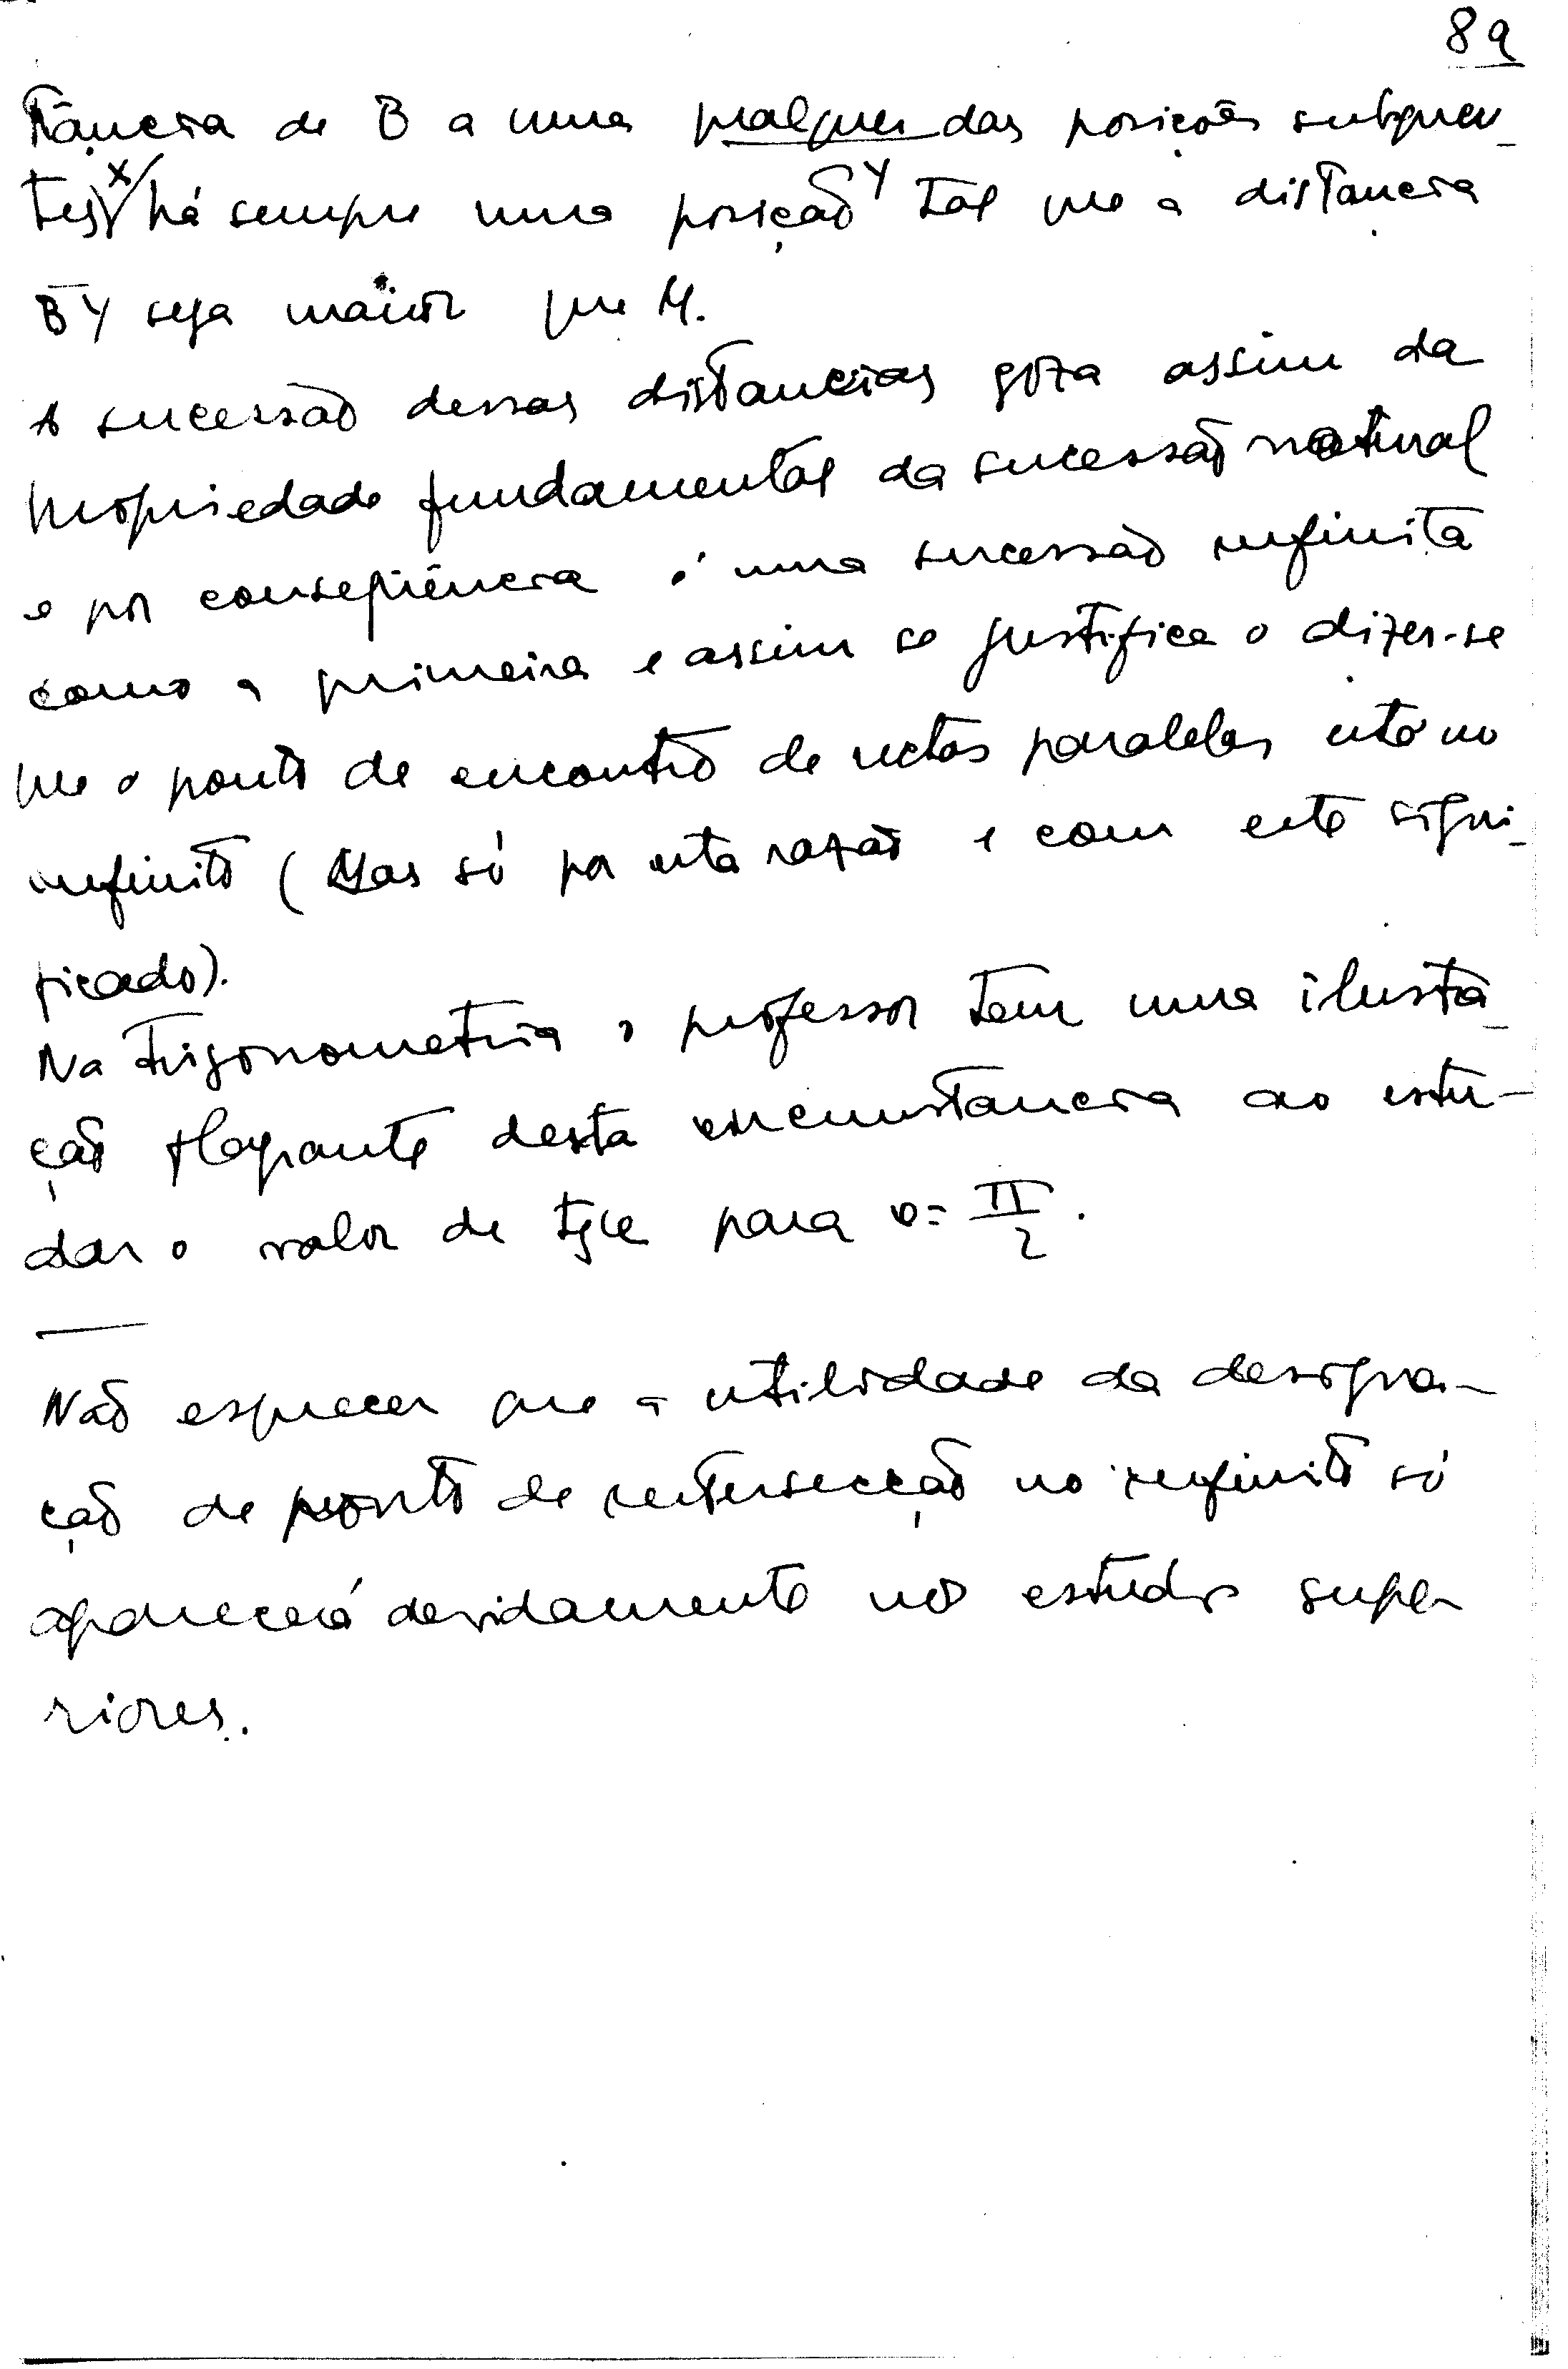 89
tância de B a uma qualquer das posições subquen-
tes X há sempre uma posição Y tal que a distancia
BY seja maior que M.
A sucessão dessas distancias goza assim da
propriedade fundamental da sucessão natural
e por conseqüência é uma sucessão infinita
como a primeira e assim se justifica o dizer-se
que o ponto de encontro de rectas paralelas está no
infinito (Mas só por esta razão e com este signi-
ficado).
Na Trigonometria o professor tem uma ilustra-
ção flagrante desta circunstancia ao estu-
dar o valor de tg x para x = π/2.
Não esquecer que a utilidade da designa-
ção de ponto de intersecção no infinito só
aparecerá devidamente nos estudos supe
riores.